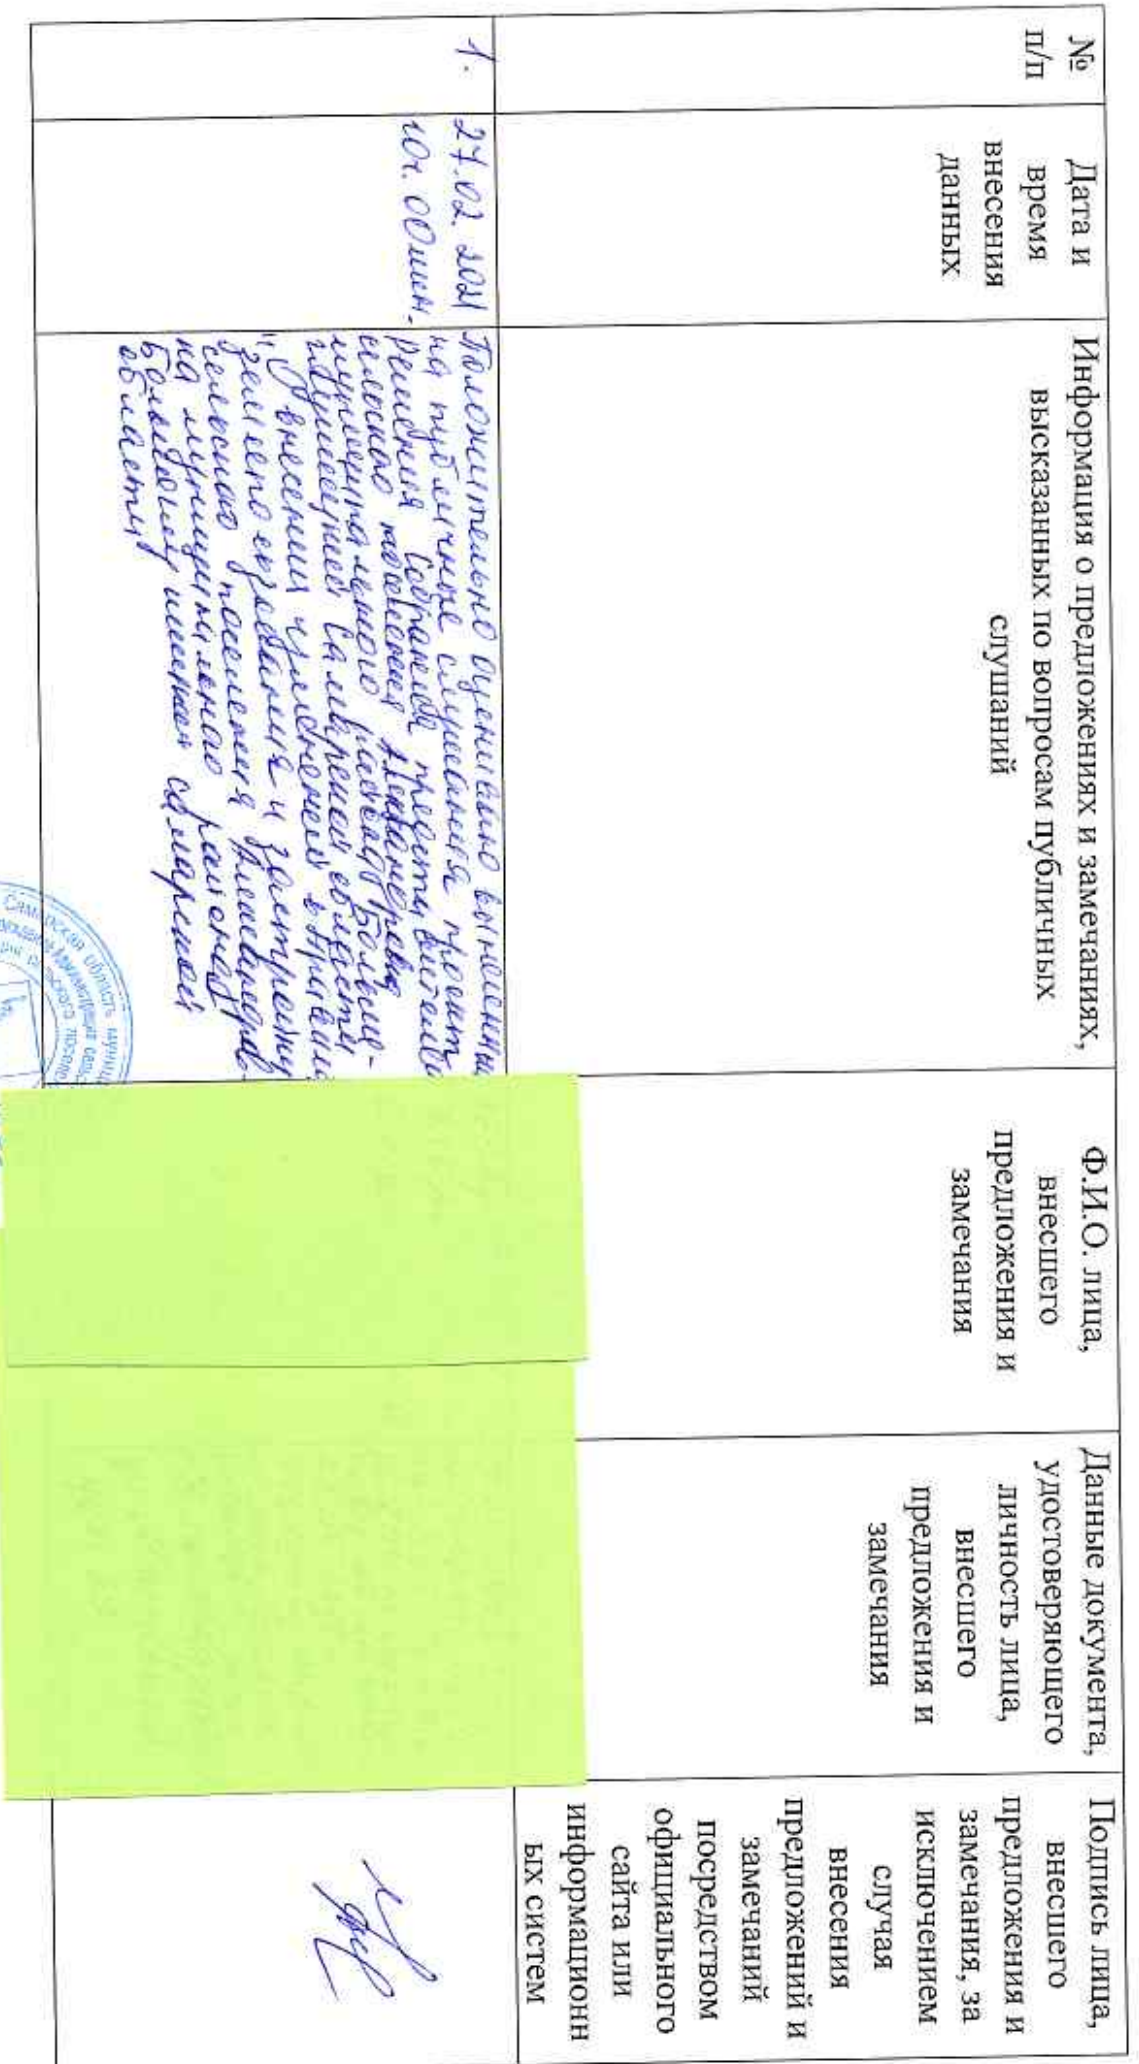 №
п/п
Дата и
время
внесения
данных
Информация о предложениях и замечаниях,
высказанных по вопросам публичных
слушаний
Ф.И.О. лица,
внесшего
предложения и
замечания
Данные документа,
удостоверяющего
личность лица,
внесшего
предложения и
замечания
Подпись лица,
внесшего
предложения и
замечания, за
исключением
случая
внесения
предложений и
замечаний
посредством
официального
сайта или
информационн
ых систем
1.
27.02 2021
10ч. 00мин.
Положительно оцениваю вынесенный
на публичные слушания проект
решения Собрания представителей
сельского поселения Александровка
муниципального района Больше-
глушицкий Самарской области
"О внесении изменений в Правила
землепользования и застройки
сельского поселения
на муниципального района
Большеглушицкий Самарской
области
Самарская область
сельского поселе